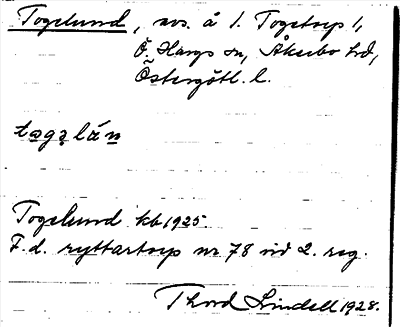 Togelund, avs. å 1. Togetorp 1,
Ö. Hargs sn, Åkerbo hd,
Östergötl. l.
togəlún
Togelund kb 1925.
F.d. ryttartorp nr 78 vid 2. reg.
Thord Lindell 1928.